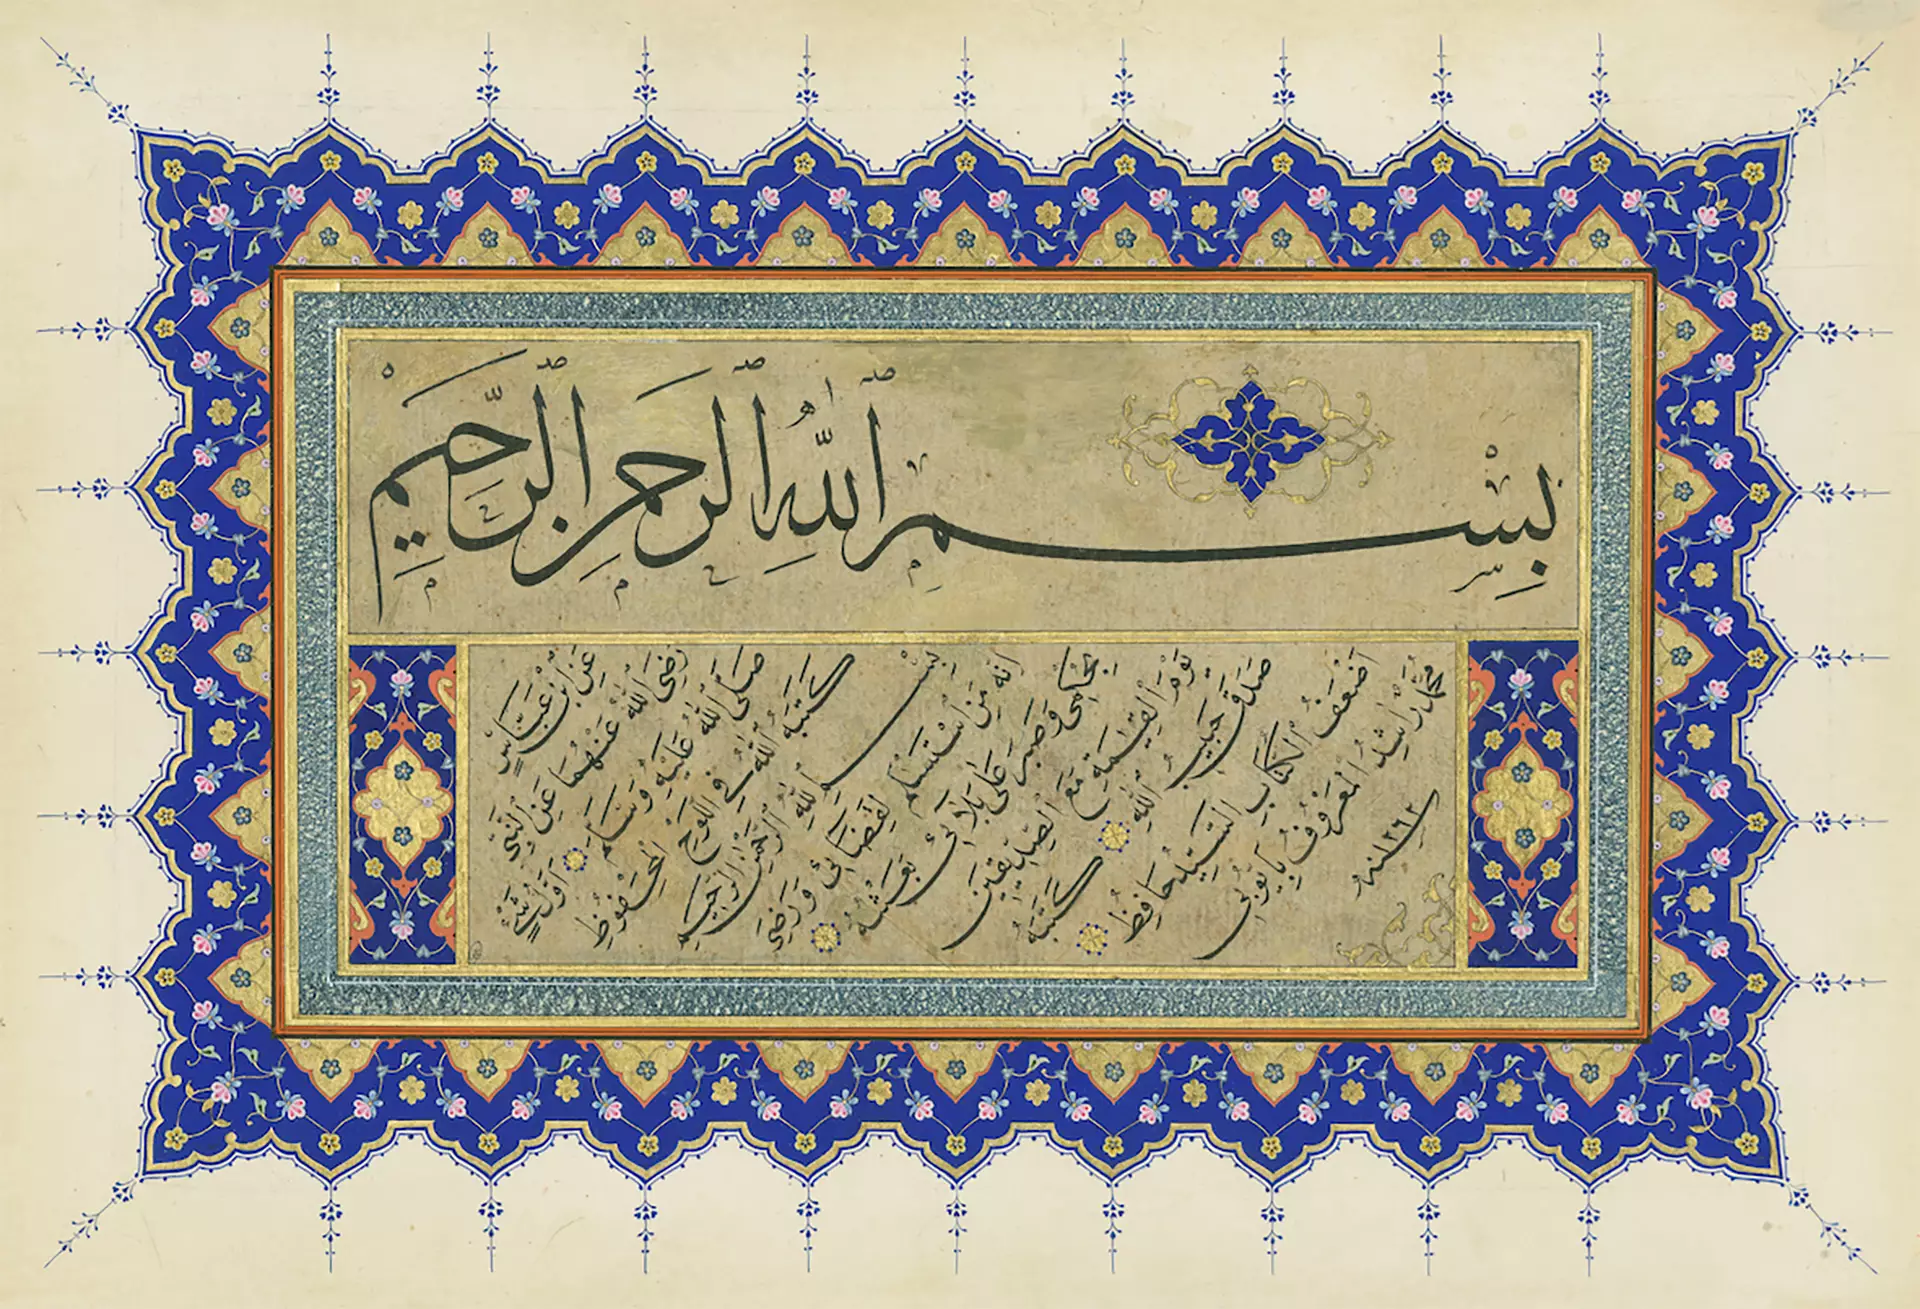 بِسْمِ اللّٰهِ الرَّحْمٰنِ الرَّحِيمِ
عَنِ ابْنِ عَبَّاسٍ
رَضِيَ اللّٰهُ عَنْهُمَا عَنِ النَّبِيِّ
صَلَّى اللّٰهُ عَلَيْهِ وَسَلَّمَ اَوَّلُ شَيْءٍ
كَتَبَهُ اللّٰهُ فِي اللَّوْحِ الْمَحْفُوظِ
بِسْمِ اللّٰهِ الرَّحْمٰنِ الرَّحِيمِ
اِنَّهُ مَنِ اسْتَسْلَمَ لِقَضَائِي وَرَضِيَ
بِحُكْمِي وَصَبَرَ عَلٰى بَلَائِي بَعَثْتُهُ
يَوْمَ الْقِيٰمَةِ مَعَ الصِّدِّيقِينَ
صَدَقَ حَبِيبُ اللّٰهِ كَتَبَهُ
اَضْعَفُ الْكُتَّابِ السَّيِّدْ حَافِظْ
مُحَمَّدْ رَاشِدْ الْمَعْرُوفُ بِاَيُّوبِي
سنه ١٢٦٢